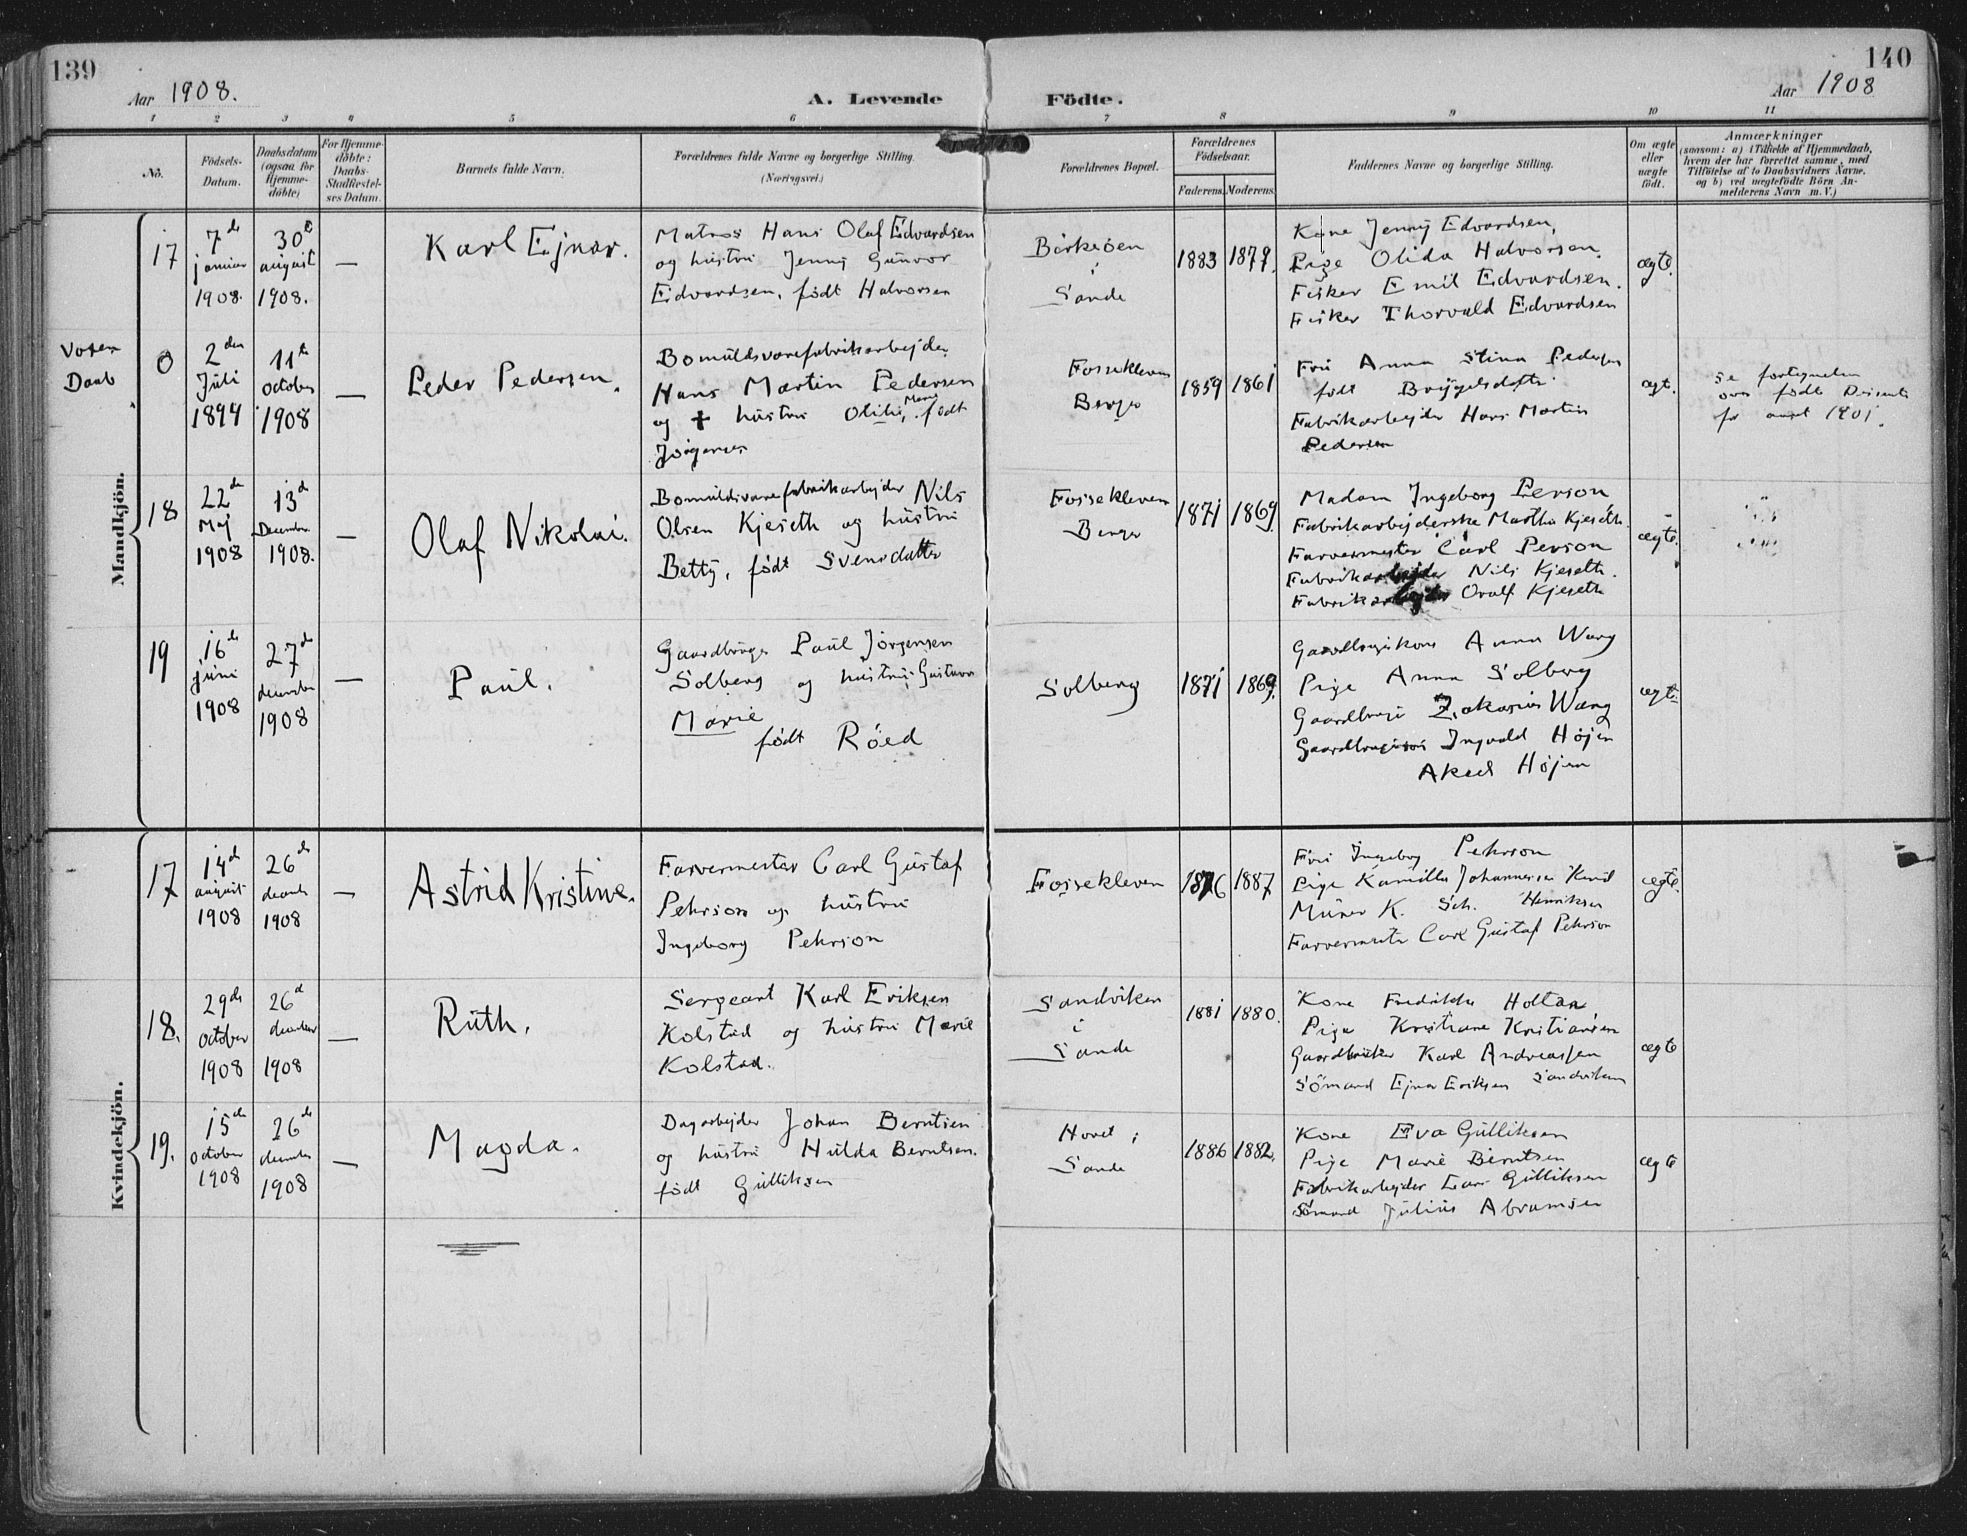 139
140
Aar 1908.
A. Levende
Födte.
Aar 1908
1 2 3 4 5 6 7 8 9 10 11
No.
Födsels-
Datum.
Daabsdatum
(ogsaa for
Hjemme-
döbte)
For Hjemme-
döbte:
Daabs-
Stadfæstel-
ses Datum.
Barnets fulde Navn.
Forældrenes fulde Navne og borgerlige Stilling.
(Næringsvei.)
Forældrenes Bopæl.
Forældrenes
Födselsaar.
Faderens. Moderens.
Faddernes Navne og borgerlige Stilling.
Om ægte
eller
uægte
födt.
Anmærkninger
(saasom: a) i Tilfælde af Hjemmedaab,
hvem der har forrettet samme, med
Tilföielse af to Daabsvidners Navne,
og b) ved uægtefödte Börn An-
melderens Navn m. V.)
Mandkjön.
17
7de
januar
1908.
30te
august
1908.
—
Karl Ejnar.
Matros Hans Olaf Edvardsen
og hustru Jenny Gunvor
Edvardsen, født Halvorsen
i
Sande
1883
1879.
Kone Jenny Edvardsen,
Pige Olida Halvorsen.
Fisker Emil Edvardsen.
Fisker Thorvald Edvardsen
ægte.
Voxen
Daab
0
2den
Juli
1894
11te
October
1908
—
Peder Pedersen.
Bomuldsvarefabrikarbejder
Hans Martin Pedersen
og + hustru Marie født
Jörgensen
Fossekleven
Berger
1859
1861
Fru Anna Stina Pedersen
født
Fabrikarbejder Hans Martin
Pedersen
ægt.
se fortegnelse
over fødte
for aaret 1901.
18
22de
Maj
1908
13de
December
1908.
—
Olaf Nikolai.
Bomuldsvarefabrikarbejder Nils
Olsen Kjeseth og hustru
Betty, født Svensdatter
Fossekleven
Berger
1871
1869
Madam Ingeborg Person
Fabrikarbejderske Martha Kjeseth.
Farvermester Carl Person
Fabrikarbejder Nils Kjeseth.
Fabrikarbejder Kjeseth
ægte.
19
16de
juni
1908
27de
december
1908
—
Paul.
Gaardbruger Paul Jörgensen
Solberg og hustru Gustava
Marie
født Röed
Solberg
1871
1869.
Gaardbrugerkone Anna Wang
Pige Anna Solberg
Gaardbruger Zakarius Wang
Ingvald Højen
Højen
ægte.
Kvindekjön.
17
14de
august
1908
26de
decemb
1908
—
Astrid Kristine.
Farvermester Carl Gustaf
Pehrson og hustru
Ingeborg Pehrson
Fossekleven
1876
1887
Fru Ingeborg Pehrson
Pige Kamilla Johannessen
K. Sch. Henriksen
Farvermester Carl Gustaf Pehrson
ægte.
18.
29de
October
1908
26de
december
1908
—
Ruth.
Sergeant Karl Eriksen
Kolstad og hustru Marie
Kolstad.
Sandviken
i
Sande
1881
1880.
Kone Fredrikke Holtan
Pige Kristiane Kristiansen
Karl Andreassen
Sömand Ejnar Eriksen Sandviken
ægte
19.
15de
October
1908
26de
december
1908
—
Magda.
Dagarbejder Johan Berntsen
og hustru Hulda Berntsen.
født Gulliksen
Hovet i
Sande
1886
1882.
Kone Eva Gulliksen
Pige Marie Berntsen
Fabrikarbejder Lars Gulliksen
Sömand Julius Abramsen
ægte